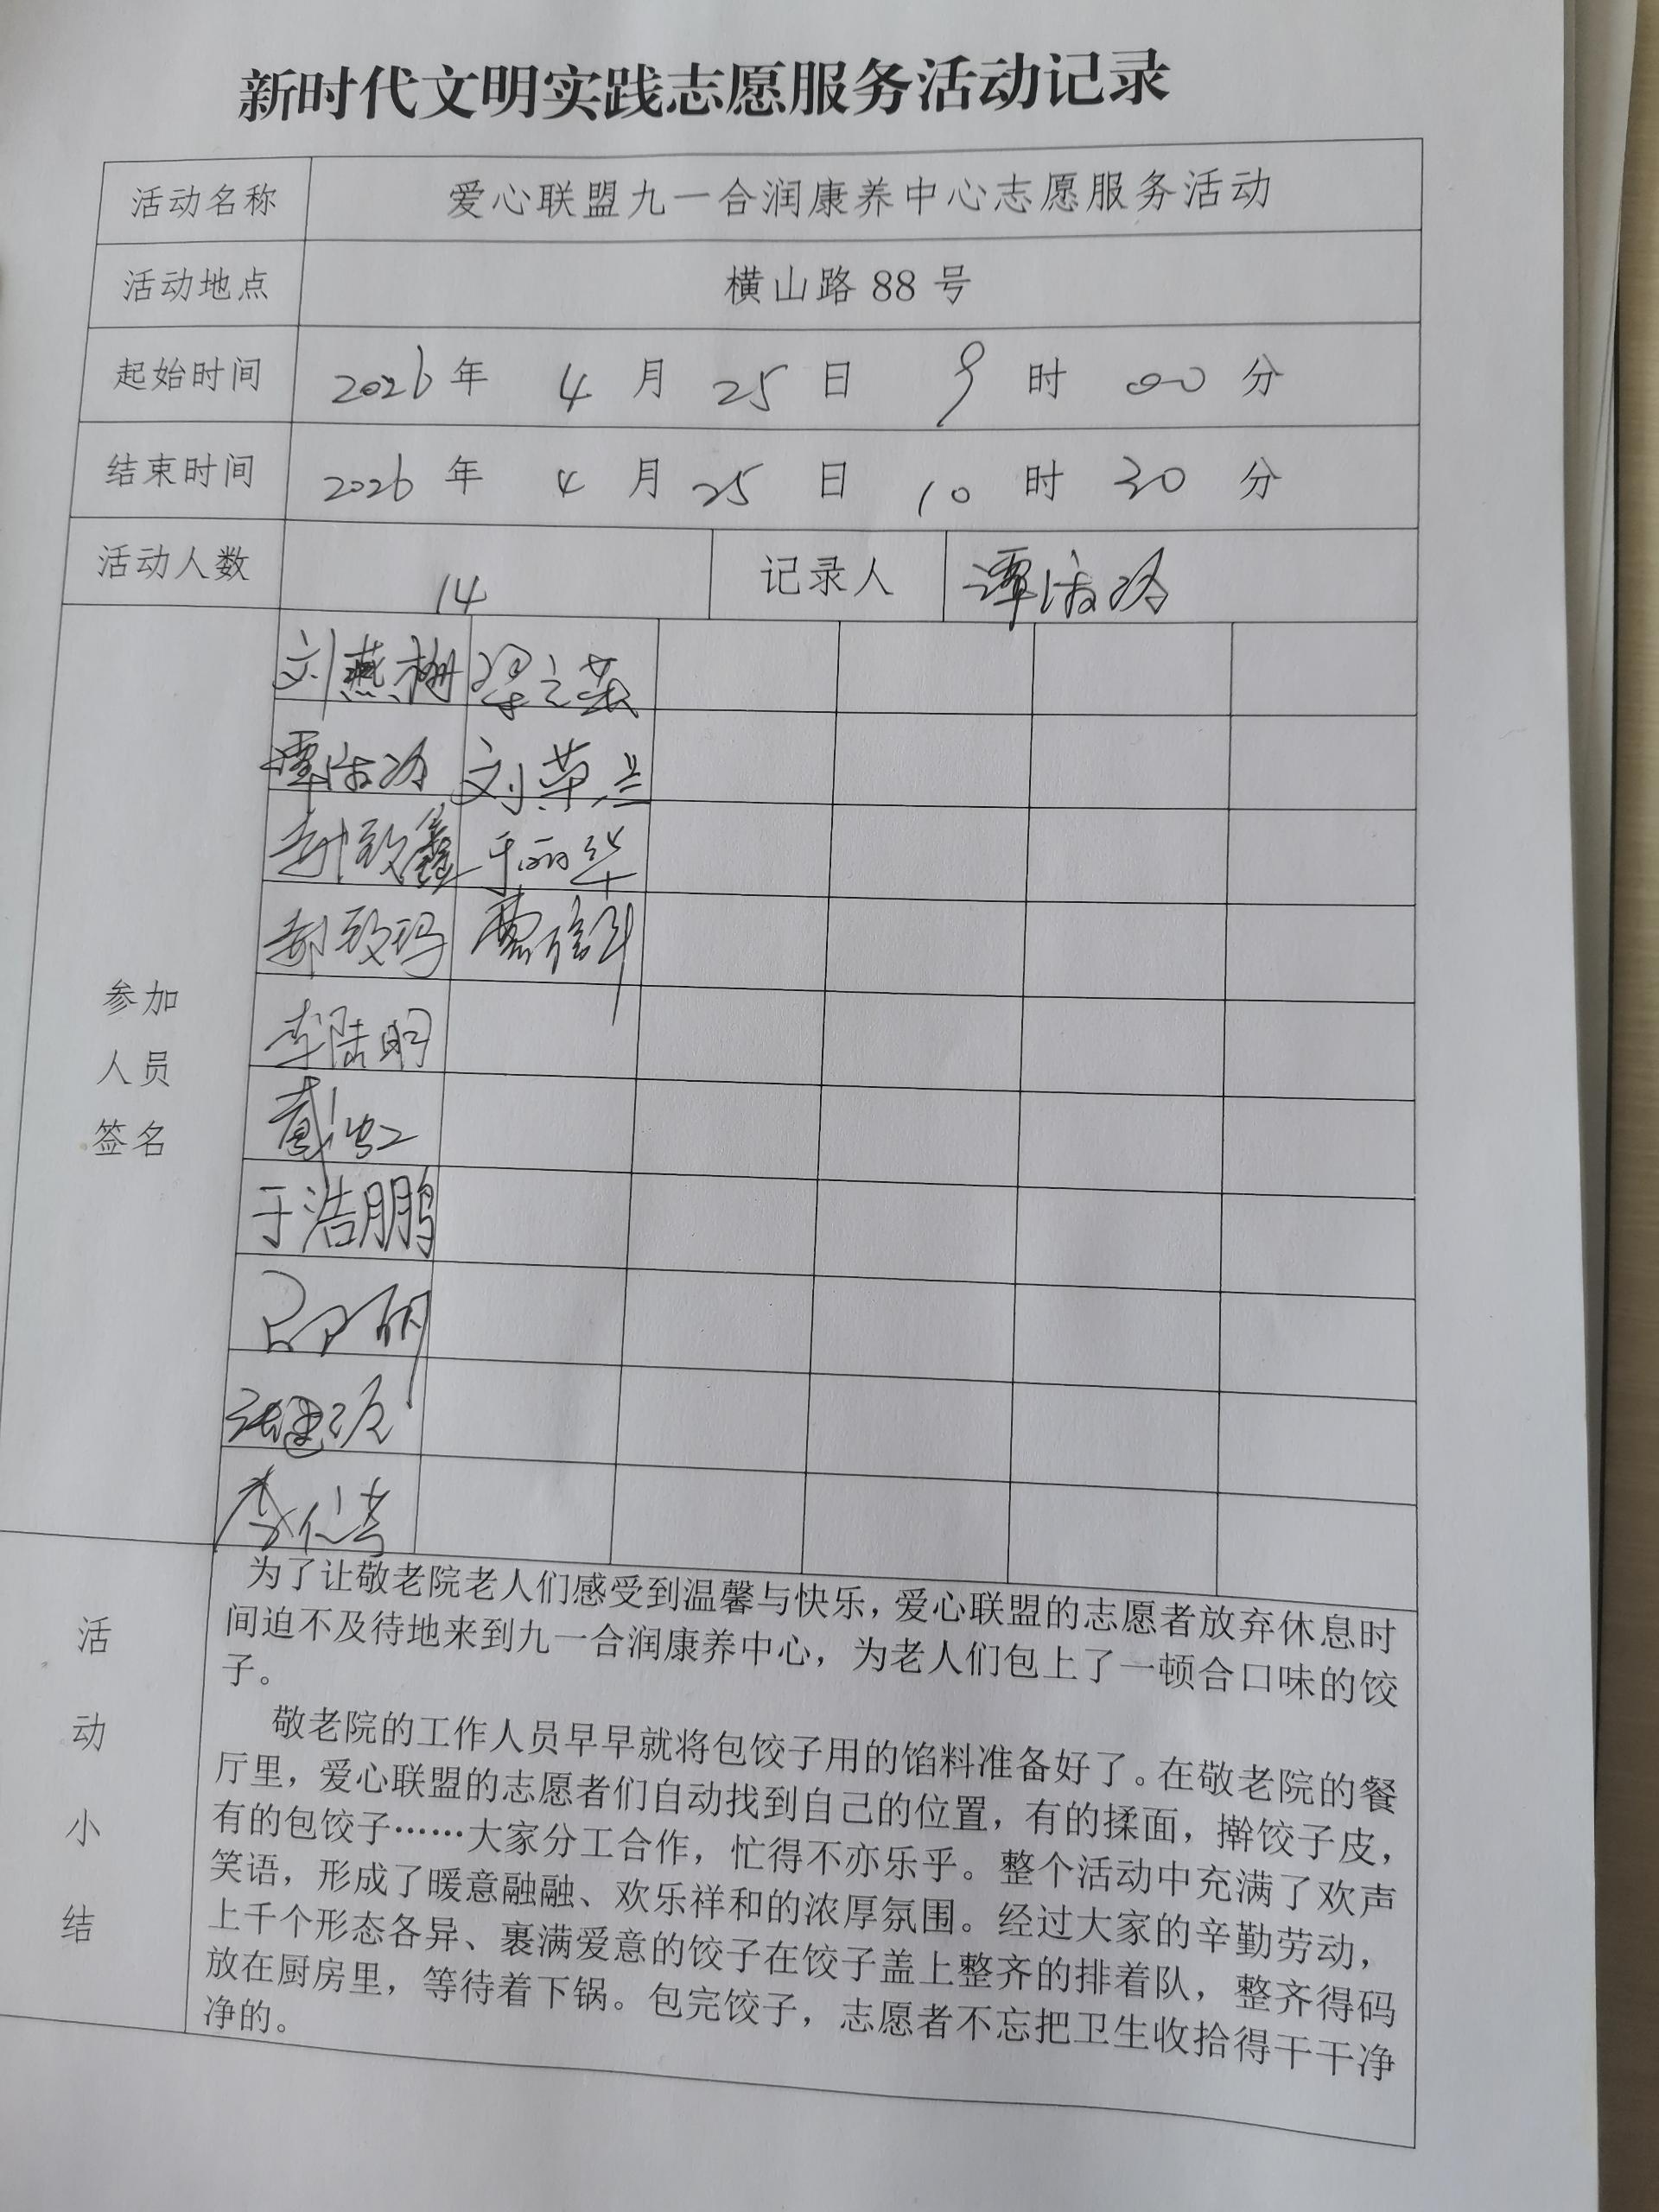 新时代文明实践志愿服务活动记录
活动名称 爱心联盟九一合润康养中心志愿服务活动
活动地点 横山路 88 号
起始时间 2026 年 4 月 25 日 9 时 00 分
结束时间 2026 年 4 月 25 日 10 时 30 分
活动人数 14 记录人
参加
人员
签名
刘燕
刘荣兰
于丽华
李陆明
于浩鹏
活
动
小
结
为了让敬老院老人们感受到温馨与快乐，爱心联盟的志愿者放弃休息时
间迫不及待地来到九一合润康养中心，为老人们包上了一顿合口味的饺
子。
敬老院的工作人员早早就将包饺子用的馅料准备好了。在敬老院的餐
厅里，爱心联盟的志愿者们自动找到自己的位置，有的揉面，擀饺子皮，
有的包饺子……大家分工合作，忙得不亦乐乎。整个活动中充满了欢声
笑语，形成了暖意融融、欢乐祥和的浓厚氛围。经过大家的辛勤劳动，
上千个形态各异、裹满爱意的饺子在饺子盖上整齐的排着队，整齐得码
放在厨房里，等待着下锅。包完饺子，志愿者不忘把卫生收拾得干干净
净的。